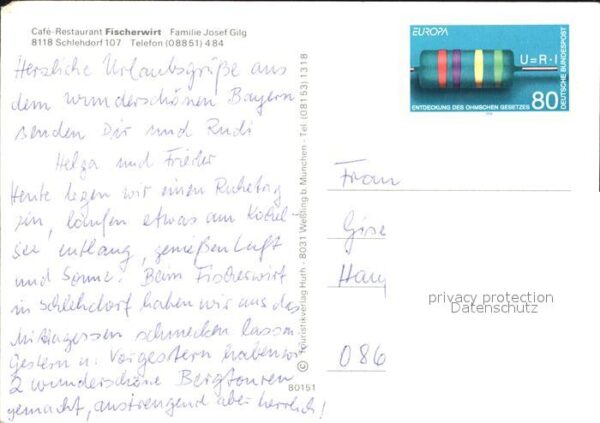 Café-Restaurant Fischerwirt Familie Josef Gilg
8118 Schlehdorf 107 Telefon (08851) 484
Herzliche Urlaubsgrüße aus
dem wunderschönen Bayern
senden Dir und Rudi
Helga und Frieder
Heute legen wir einen Ruhetag
ein, laufen etwas am Kochel-
see entlang, genießen Luft
und Sonne. Beim Fischerwirt
in Schlehdorf haben wir uns das
Mittagessen schmecken lassen.
Gestern u. Vorgestern haben wir
2 wunderschöne Bergtouren
gemacht, anstrengend aber herrlich!
© Touristikverlag Huth · 8031 Weßling b. München - Tel. (08153) 1318
80151
EUROPA
U=R·I
ENTDECKUNG DES OHMSCHEN GESETZES
80
DEUTSCHE BUNDESPOST
Frau
086
privacy protection
Datenschutz